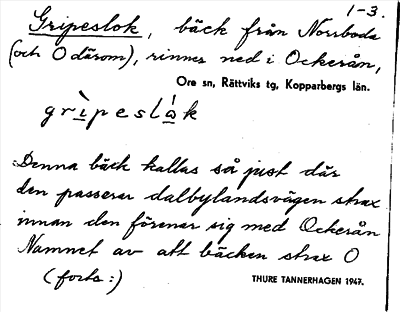 1-3.
Gripeslok, bäck från Norrboda
(och O därom), rinner ned i Ockerån,
Ore sn, Rättviks tg, Kopparbergs län.
grìpeslák
Denna bäck kallas så just där
den passerar dalbylandsvägen strax
innan den förenar sig med Ockerån
Namnet av att bäcken strax O
(forts:)
THURE TANNERHAGEN 1947.